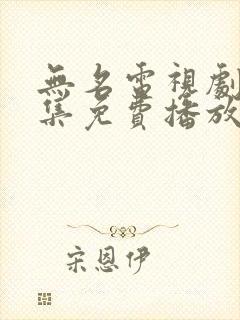 無名電視劇
集免費播放
宋恩伊